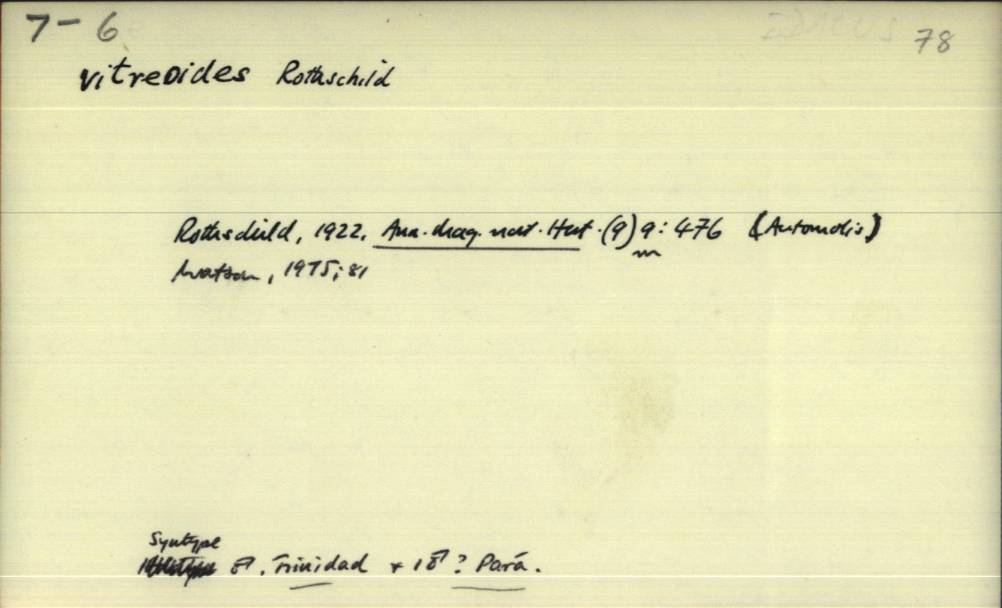 7-6 78
vitreoides Rothschild
Rothschild, 1922. Ann. mag. nat. Hist. (9) 9: 476 (Automolis)
Watson, 1975: 81
Syntype
♂. Trinidad + 1♂? Pará.